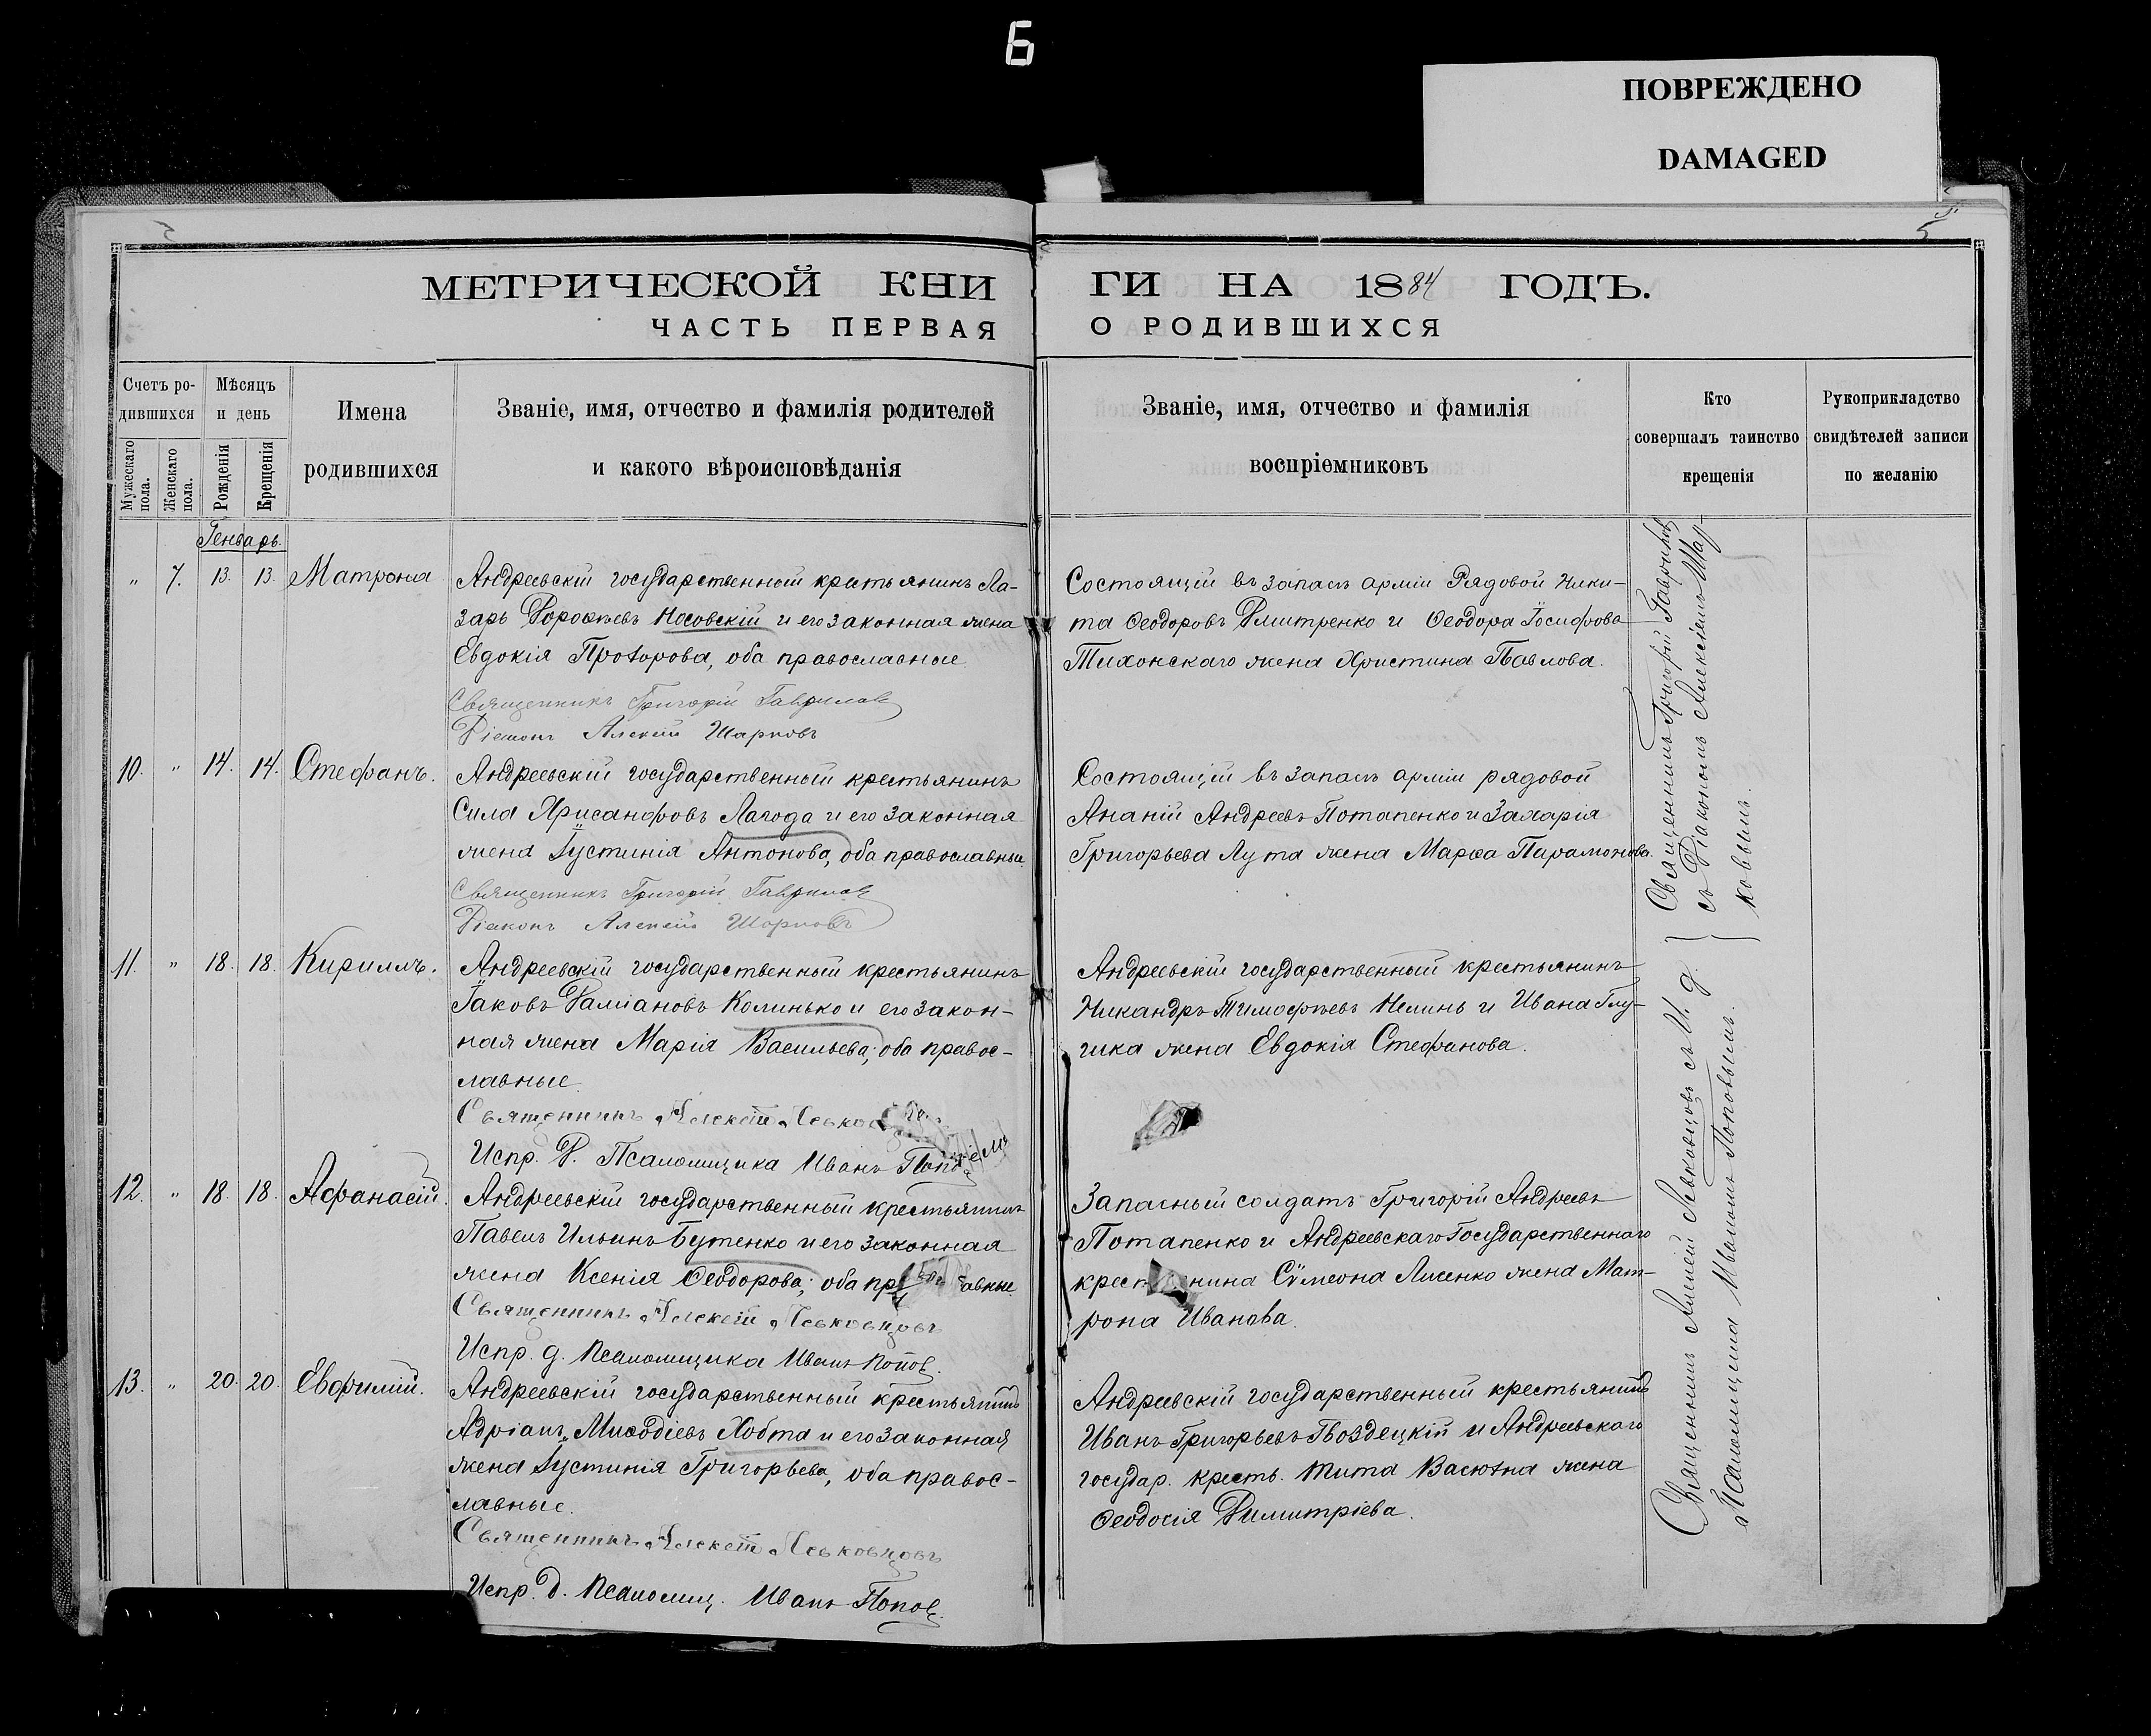 Б
ПОВРЕЖДЕНО
DAMAGED
5
МЕТРИЧЕСКОЙ КНИ ГИ НА 1884 ГОДЪ.
ЧАСТЬ ПЕРВАЯ О РОДИВШИХСЯ
Счетъ родившихся
Мужескаго пола.
Женскаго пола.
Мѣсяцъ и день
Рожденія
Крещенія
Имена
родившихся
Званіе, имя, отчество и фамилія родителей
и какого вѣроисповѣданія
Званіе, имя, отчество и фамилія
воспріемниковъ
Кто
совершалъ таинство
крещенія
Рукоприкладство
свидѣтелей записи
по желанію
Генварь.
" 7. 13. 13. Матрона
Андреевскій государственный крестьянинъ Ла-
зарь Дороѳеевъ Носовскій и его законная жена
Евдокія Проторова, оба православные
Священникъ Григорій Гаврилов
Діаконъ Алексій Шарковъ
Состоящій въ запасѣ арміи Рядовой Ники-
та Ѳеодоровъ Дмитренко и Ѳеодора Іосифова
Тихонскаго жена Христина Павлова.
10. " 14. 14. Стефанъ.
Андреевскій государственный крестьянинъ
Сила Хрисанфовъ Лагода и его законная
жена Іустинія Антонова, оба православные
Священникъ Григорій Гаврилов
Діаконъ Алексій Шарковъ
Состоящій въ запасѣ арміи рядовой
Ананій Андреевъ Потапенко и Захарія
Григорьева Лута жена Марѳа Парамонова.
11. " 18. 18. Кириллъ.
Андреевскій государственный крестьянинъ
Іаковъ Даміановъ Колинько и его закон-
ная жена Марія Васильева; оба правос-
лавные.
Священникъ Алексій
Испр. д. Псаломщика Иванъ
Андреевскій государственный крестьянинъ
Никандръ Тимоѳеевъ Нелинь и Ивана Глу-
щика жена Евдокія Стефанова.
12. " 18. 18. Афанасій.
Андреевскій государственный крестьянинъ
Павелъ Ильинъ Бутенко и его законная
жена Ксенія Ѳеодорова; оба пр авные
Священникъ Алексій Леьковцовъ
Испр. д. Псаломщика Иванъ Попов.
Запасный солдатъ Григорій Андреевъ
Потапенко и Андреевскаго Государственнаго
крест нина Сѵмеона Лисенко жена Мат-
рона Иванова.
13. " 20. 20. Евфимій.
Андреевскій государственный крестьянинъ
Адріанъ Меѳодіевъ Хобта и его законная
жена Іустинія Григорьева, оба правос-
лавные.
Священникъ Алексій Леьковцовъ
Испр. д. Псаломщ. Иванъ Попов.
Андреевскій государственный крестьянинъ
Иванъ Григорьевъ Гвоздецкій и Андреевскаго
государ. кресть. Тита Васютна жена
Ѳеодосія Димитріева.
Священникъ Григорій Гавриловъ
съ Діакономъ Алексіемъ Шар-
ковымъ.
Священникъ Алексій Леьковцовъ съ И. д.
Псаломщика Иваномъ Поповымъ.